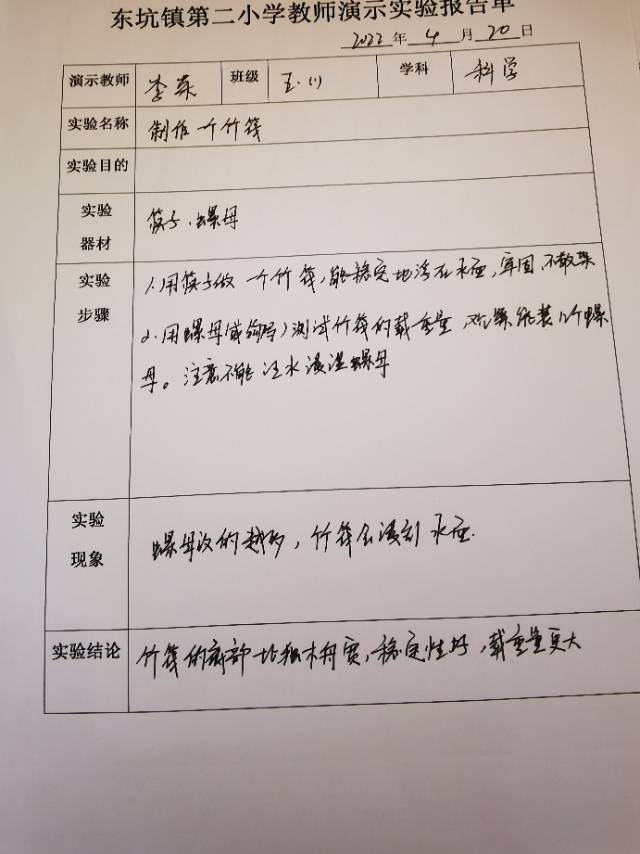 东坑镇第二小学教师演示实验报告单
2022 年 4 月 20 日
演示教师 李 班级 五.(1) 学科 科学
实验名称 制作一个竹筏
实验目的
实验器材 筷子、螺母
实验步骤 1.用筷子做一个竹筏,能稳定地浮在水面,牢固,不散架
2.用螺母(或钩码)测试竹筏的载重量,观察能装几个螺
母。注意不能让水浸湿螺母
实验现象 螺母放的越多,竹筏会浸到水面.
实验结论 竹筏的底部比独木舟宽,稳定性好,载重量更大